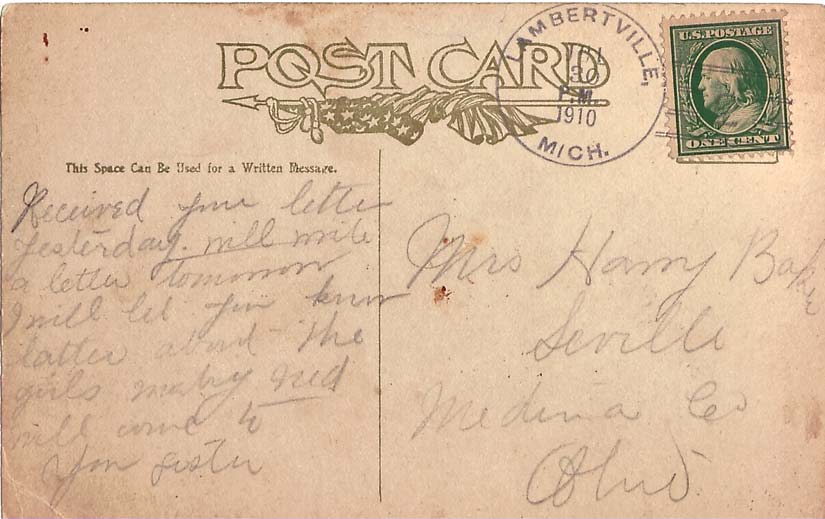 POST CARD
LAMBERTVILLE,
30
P.M.
1910
MICH.
U.S. POSTAGE
ONE CENT
This Space Can Be Used for a Written Message.
Received your letter
yesterday. will write
a letter tomorrow
I will let you know
latter about the
girls Ned
will come to
Your sister
Mrs Harry Baker
Seville
Medina Co
Ohio